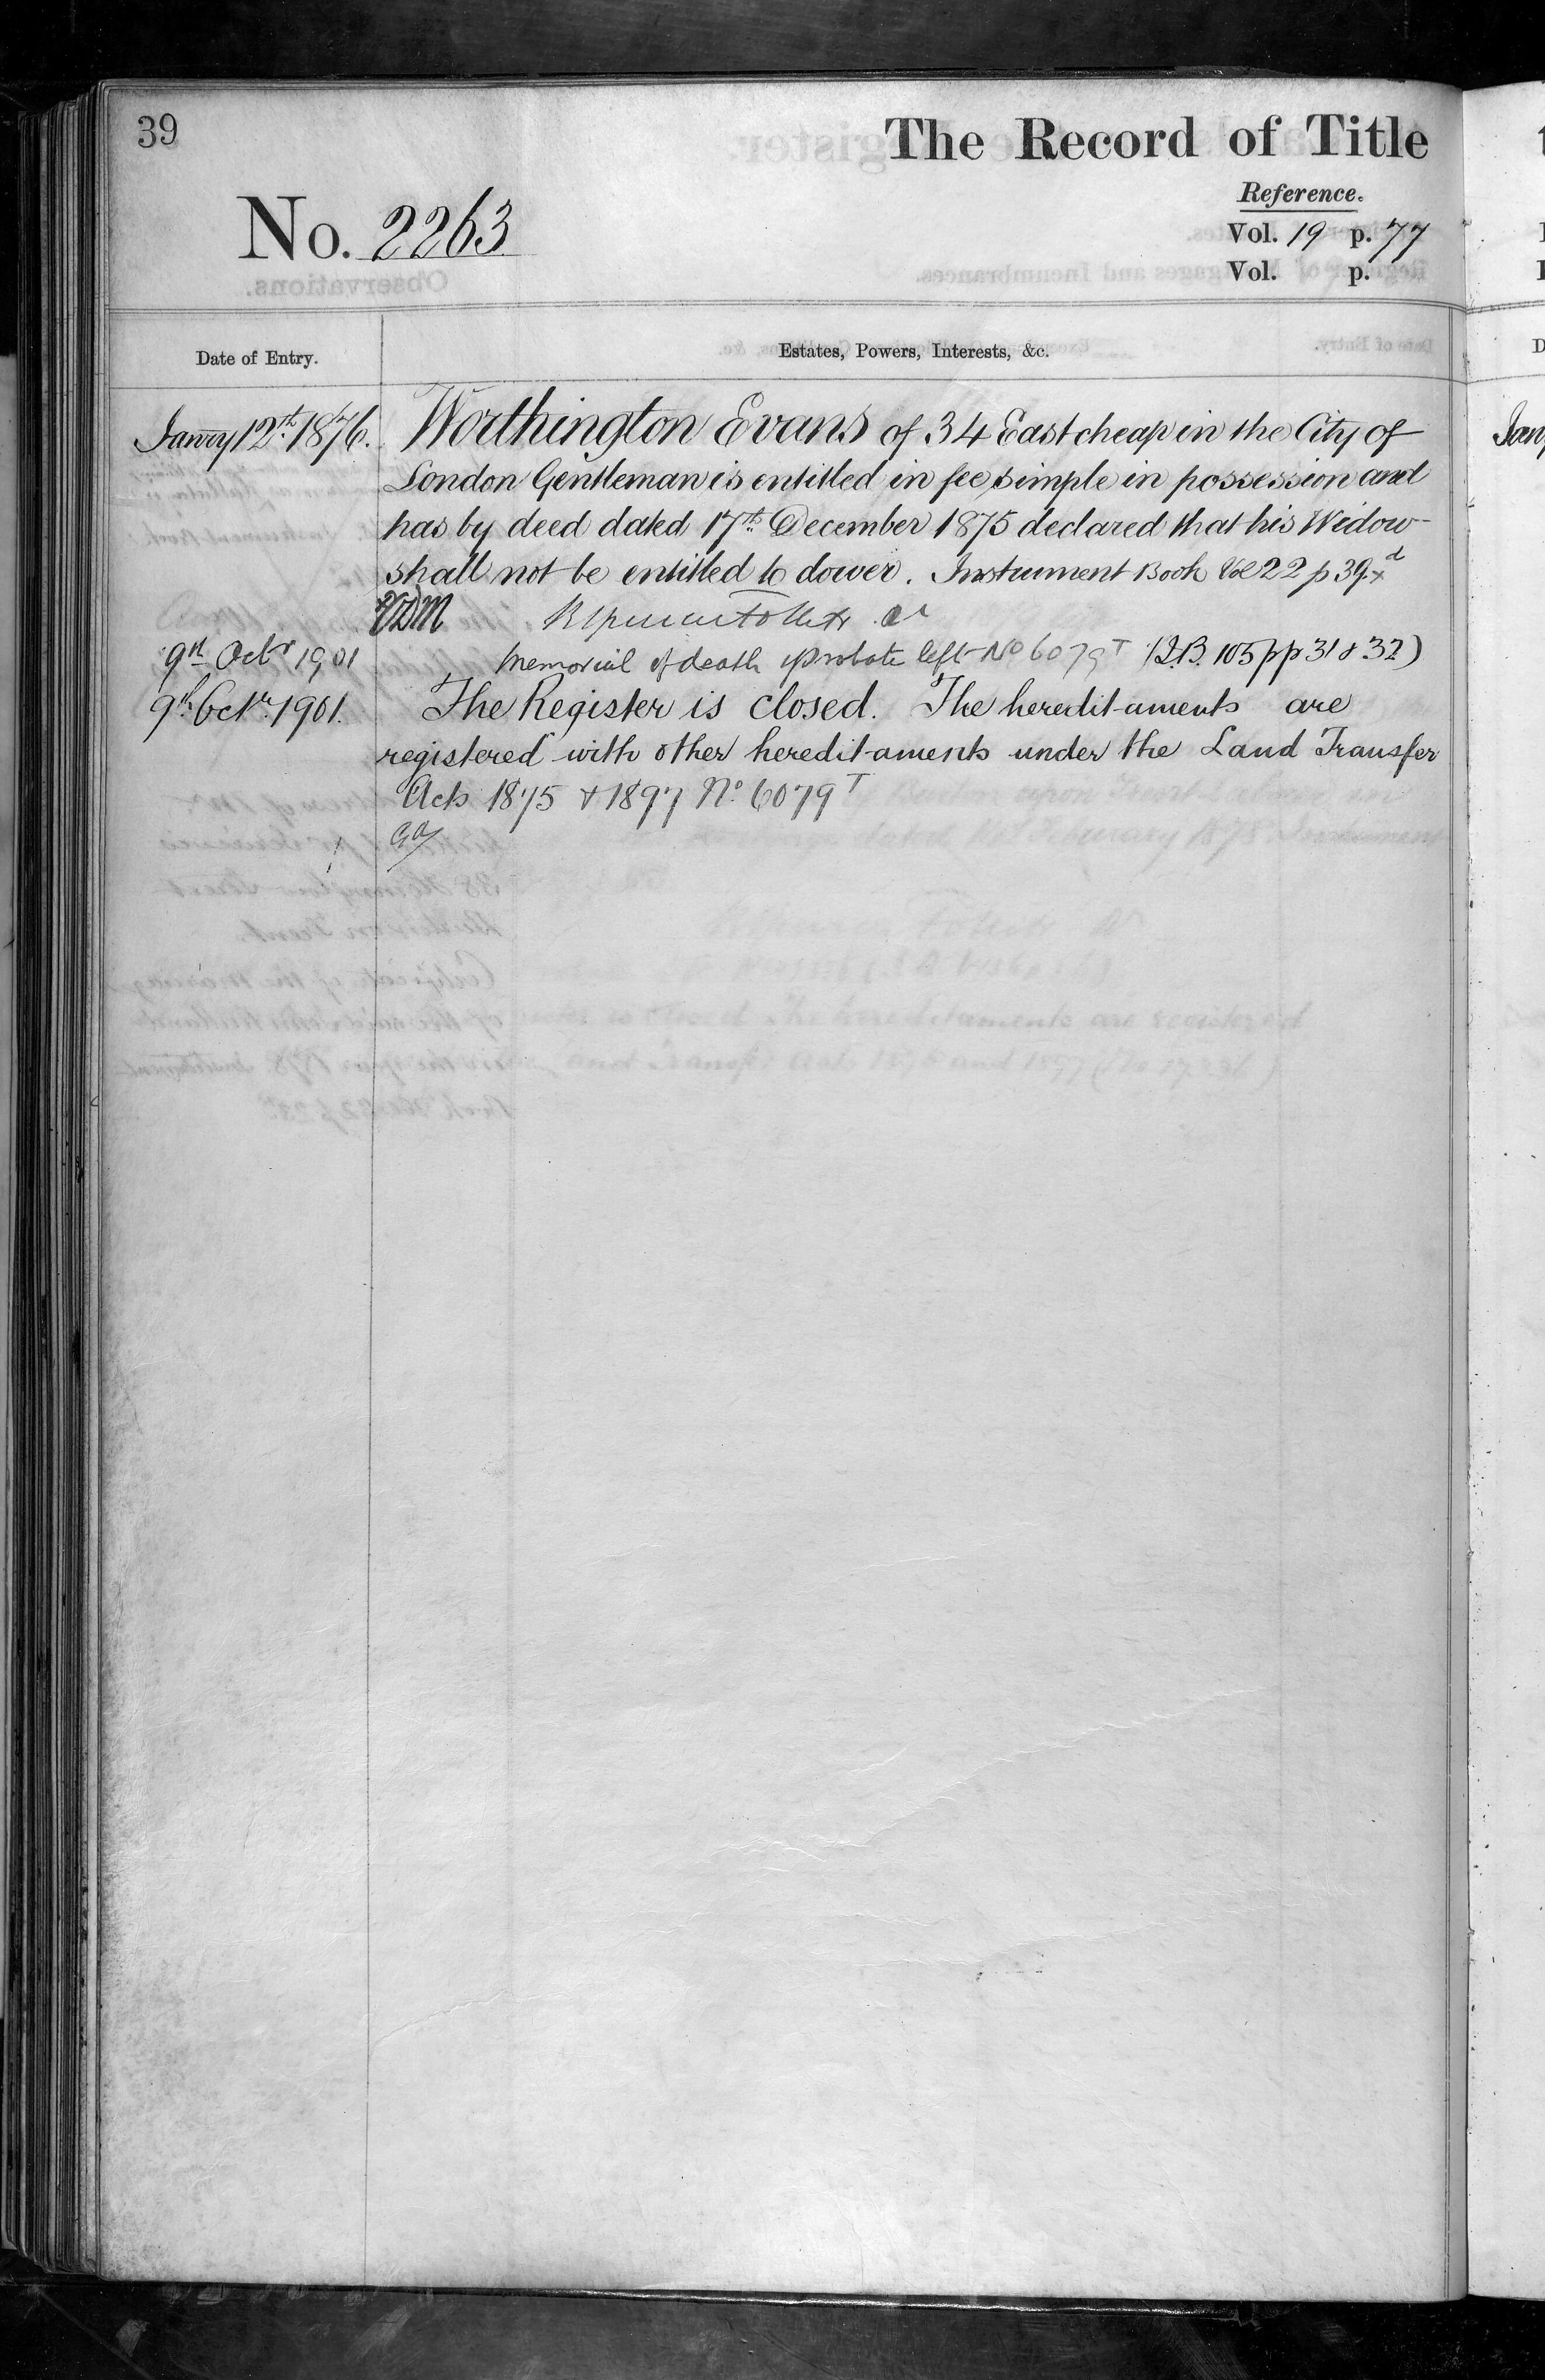 39
The Record of Title
Reference.
No. 2263
Vol. 19 p. 77
Vol. p.
Date of Entry.
Estates, Powers, Interests, &c.
Janry 12th 1876. Worthington Evans of 34 Eastcheap in the City of
London Gentleman is entitled in fee simple in possession and
has by deed dated 17th December 1875 declared that his Widow
shall not be entitled to dower. Instrument Book Vol 22 p 39.
9th Octr 1901 Memorial of death & probate left No 6079T (I.B. 105 pp 31 & 32)
9th Octr. 1901. The Register is closed. The hereditaments are
registered with other hereditaments under the Land Transfer
Acts 1875 & 1897 No. 6079T